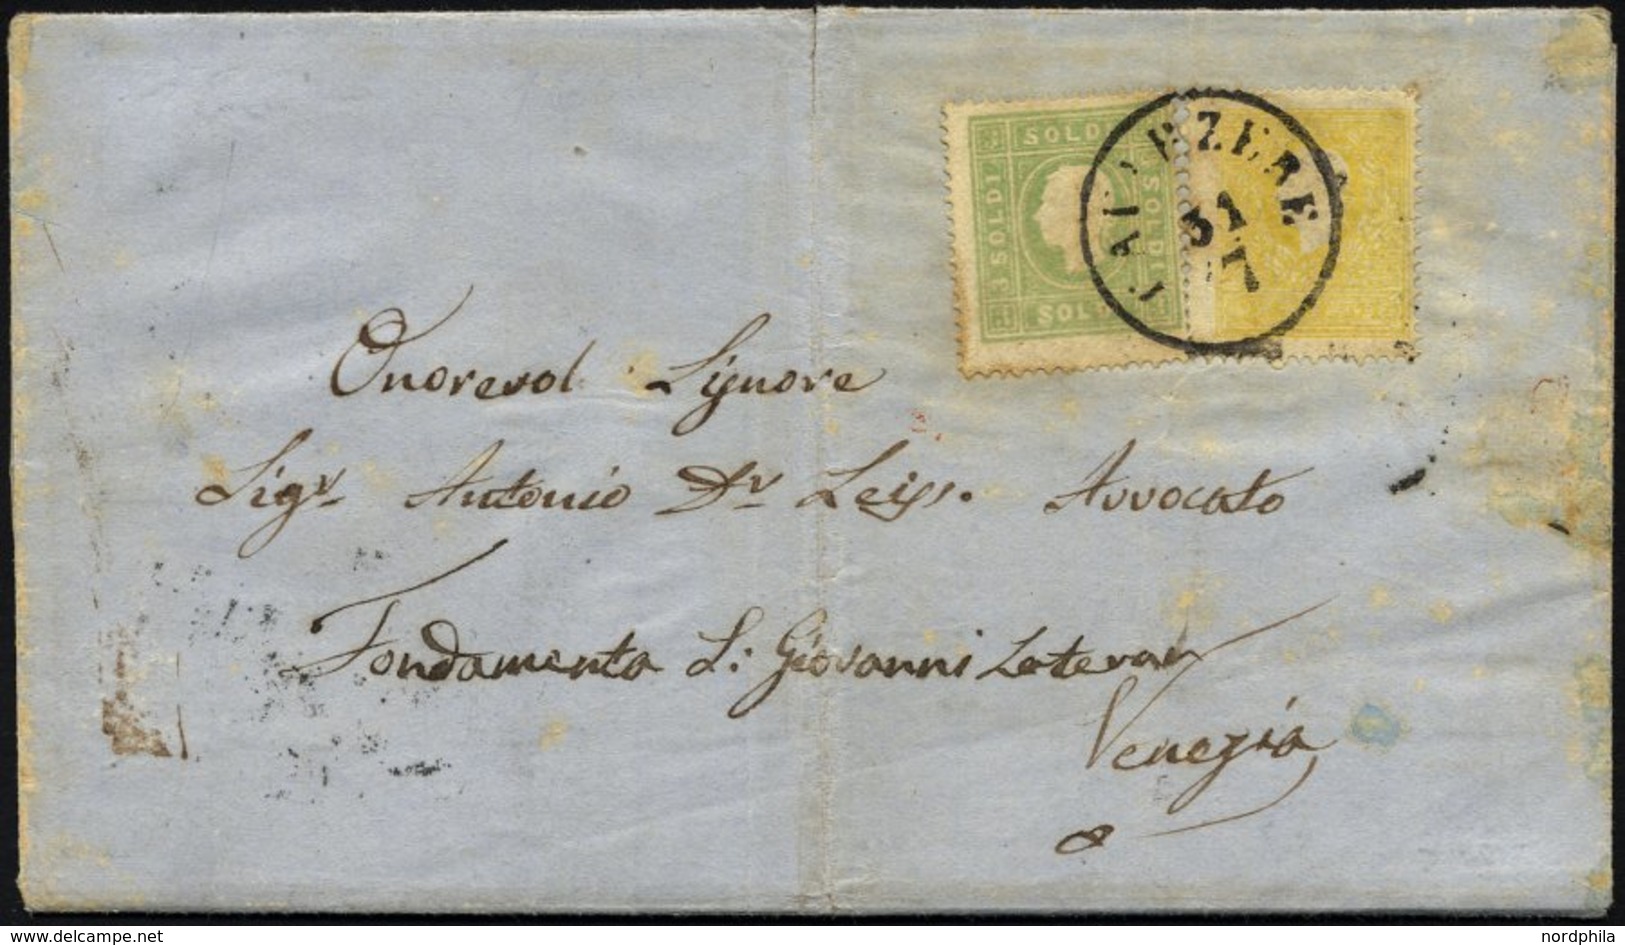 SOLDI
3 SOLDI
SOLDI
SOLDI
31
7
Onorevol Signore
Sigr Antonio Dr Leiss. Avvocato
Fondamenta S: Giovanni Lateran
Venezia
delcampe.net
nordphila